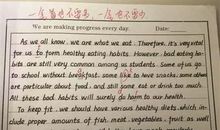 一个字也不留多，一个也不留少
We are making progress every day. Date:
As we all know, we are what we eat. Therefore, it's very vital
for us to form healthy eating habits. However, bad eating ha-
bits are still very common among us students. Some of us go
to school without breakfast, some like to have snacks, some others
are particular about food, and still some eat or drink too much.
All these bad habits will surely do harm to our health.
To keep fit, we should have various healthy diets, which in-
clude proper amounts of fish, meat, vegetables, fruit as well